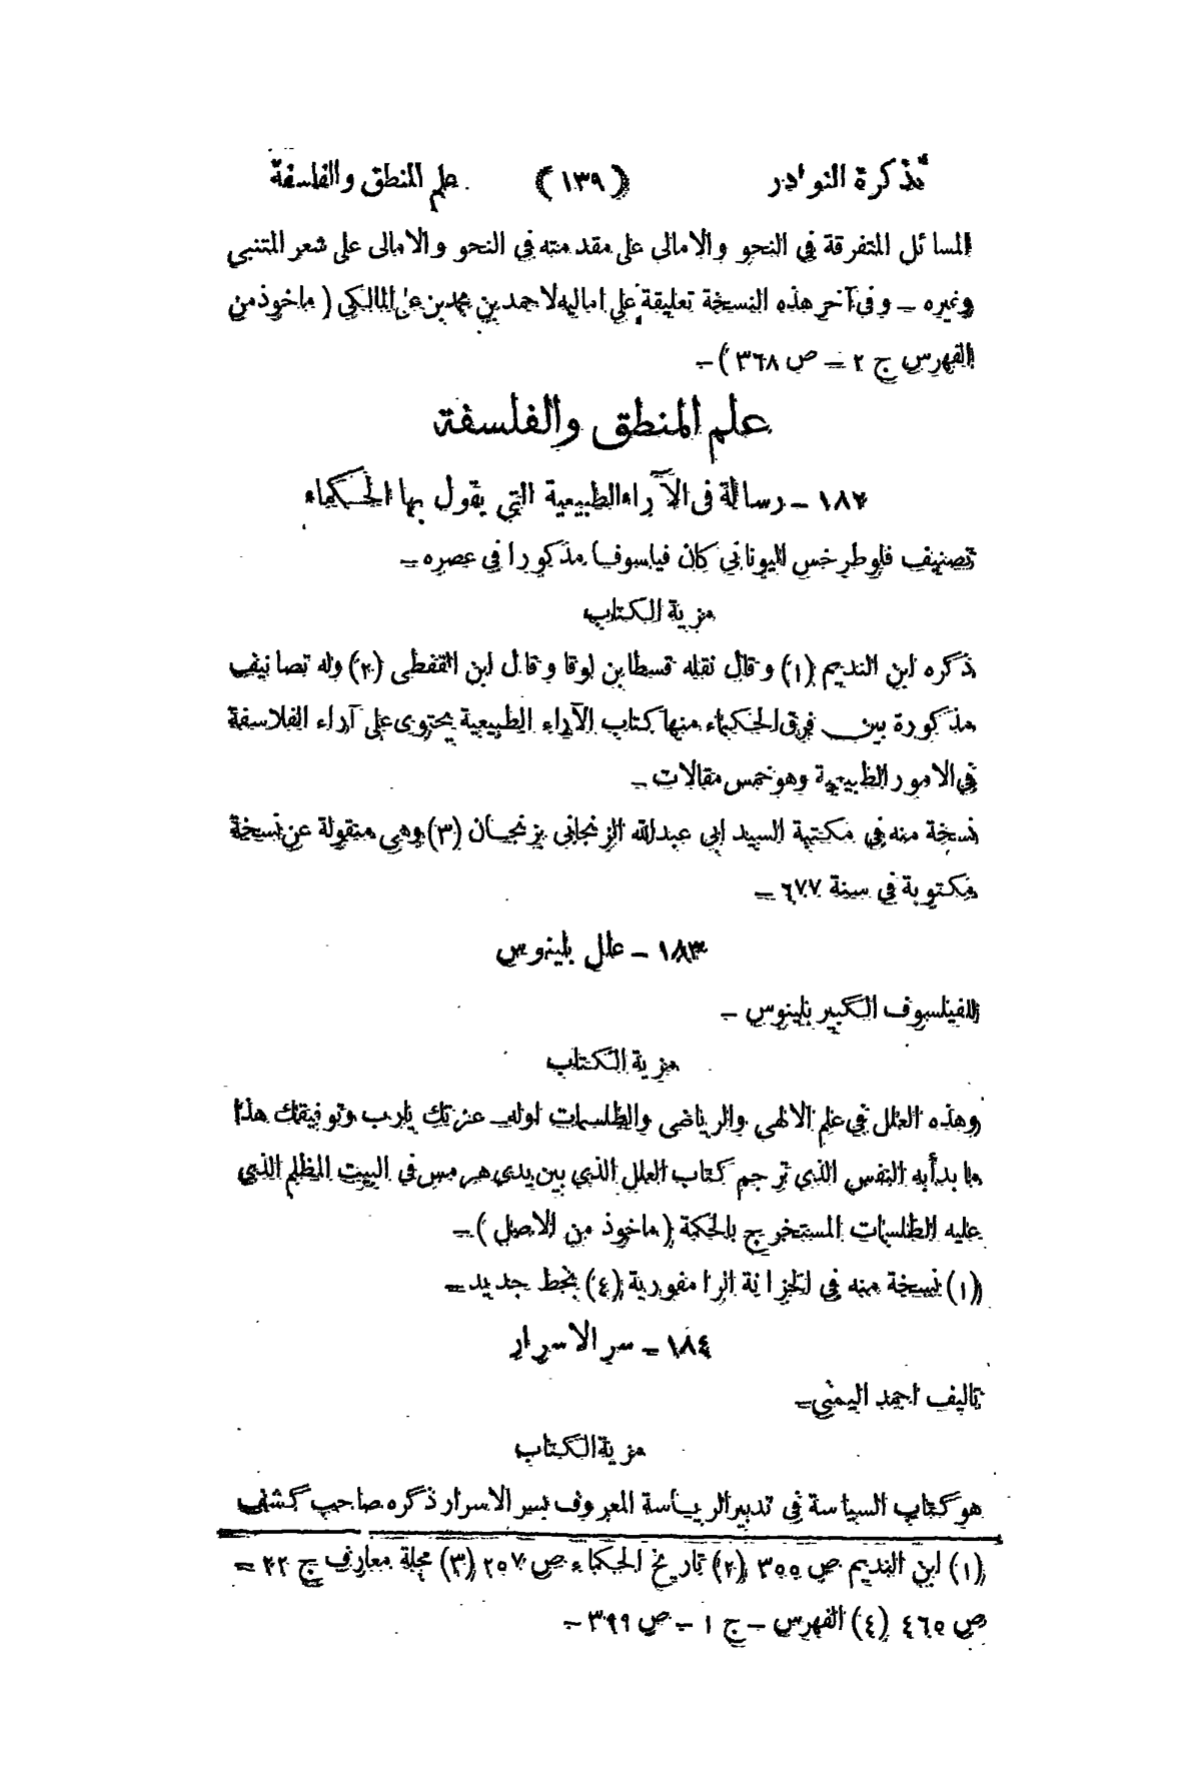 تذكرة النوادر (١٣٩) علم المنطق والفلسفة
المسائل المتفرقة في النحو والامالى على مقدمته في النحو والامالى على شعر المتنبي
وغيره ــ وفى آخر هذه النسخة تعليقة على اماليه لاحمد بن محمد بن على المالكى (ماخوذ من
الفهرس ج ٢ ــ ص ٣٦٨) ــ
علم المنطق والفلسفة
١٨٢ ــ رسالة فى الآراء الطبيعية التي يقول بها الحكماء
تصنيف فلوطرخس اليوناني كان فيلسوفا مذكورا في عصره ــ
مزية الكتاب
ذكره ابن النديم (١) وقال نقله قسطا بن لوقا وقال ابن القفطى (٢) وله تصانيف
مذكورة بين فرق الحكماء منها كتاب الآراء الطبيعية يحتوى على آراء الفلاسفة
في الامور الطبيعية وهو خمس مقالات ــ
نسخة منه في مكتبة السيد ابي عبدالله الزنجانى بزنجان (٣) وهى منقولة عن نسخة
مكتوبة في سنة ٦٧٧ ــ
١٨٣ ــ علل بلينوس
للفيلسوف الكبير بلينوس ــ
مزية الكتاب
وهذه العلل في علم الالهى والرياضى والطلسمات اوله ــ عزتك يارب وتوفيقك هذا
ما بدأ به النفس الذي ترجم كتاب العلل الذي بين يدى هرمس في البيت المظلم الذي
عليه الطلسمات المستخرج بالحكمة (ماخوذ من الاصل) ــ
(١) نسخة منه في الخزانة الرامفورية (٤) بخط جديد ــ
١٨٤ ــ سر الاسرار
تاليف احمد اليمني ــ
مزية الكتاب
هو كتاب السياسة في تدبير الرياسة المعروف بسر الاسرار ذكره صاحب كشف
(١) ابن النديم ص ٣٥٥ (٢) تاريخ الحكماء ص ٢٥٧ (٣) مجلة معارف ج ٢٢ ــ
ص ٤٦٥ (٤) الفهرس ــ ج ١ ــ ص ٣٩٩ ــ